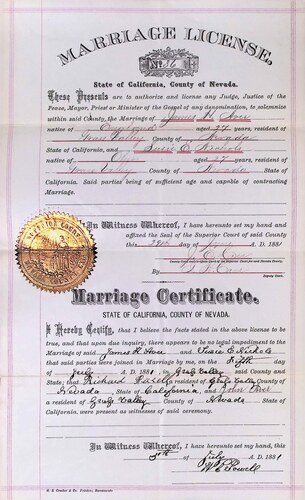 MARRIAGE LICENSE,
No. 56
State of California, County of Nevada.
These Presents are to authorize and license any Judge, Justice of the
Peace, Mayor, Priest or Minister of the Gospel of any denomination, to solemnize
within said County, the Marriage of James H Hore
native of England aged 27 years, resident of
Grass Valley County of Nevada
State of California, and Susie E Nichols
native of aged years, resident of
Grass Valley County of Nevada
State of California. Said parties being of sufficient age and capable of contracting
Marriage.
In Witness Whereof, I have hereunto set my hand and
affixed the Seal of the Superior Court of said County
this day of A. D. 1881
By
Deputy Clerk
Marriage Certificate.
STATE OF CALIFORNIA, COUNTY OF NEVADA.
I Hereby Certify, that I believe the facts stated in the above license to be
true, and that upon due inquiry, there appears to be no legal impediment to the
Marriage of said James H Hore and Susie E Nichols
that said parties were joined in Marriage by me, on the Fifth day
of July A. D. 1881, in Grass Valley said County and
State; that Richard a resident of Grass Valley County
of Nevada State of California, and John
a resident of Grass Valley County of Nevada State of
California, were present as witnesses of said ceremony.
In Witness Whereof, I have hereunto set my hand, this
5th of July A. D. 1881
W C Powell